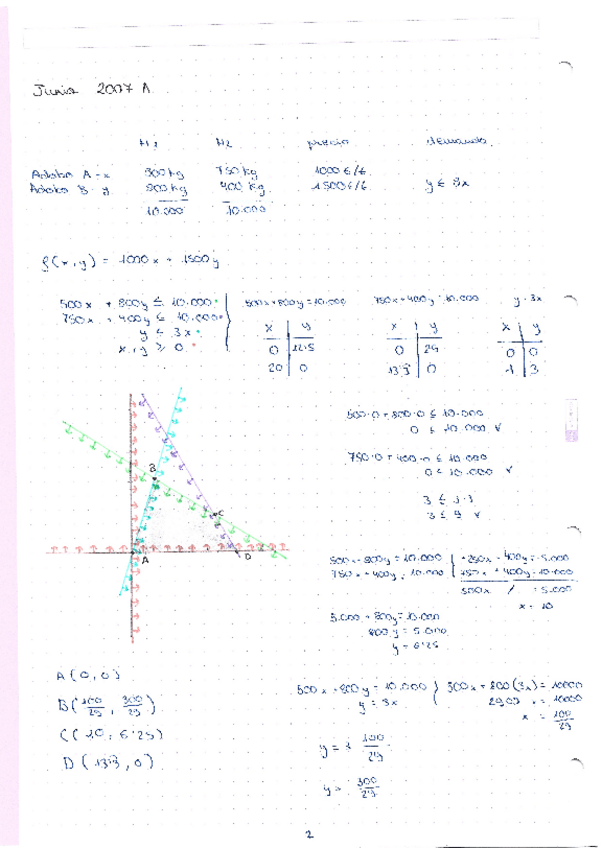 Junio 2007 A
M1 M2 precio demanda
Adobo A - x 500kg 750kg 1000€/t
Adobo B - y 800kg 400kg 1500€/t y ≤ 3x
10.000 10.000
f(x,y) = 1000x + 1500y
500x + 800y ≤ 10.000
750x + 400y ≤ 10.000
y ≤ 3x
x, y ≥ 0
500x+800y=10.000
x y
0 12'5
20 0
750x+400y=10.000
x y
0 25
13'3 0
y=3x
x y
0 0
1 3
B
C
A
D
500·0+800·0 ≤ 10.000
0 ≤ 10.000 ✓
750·0+400·0 ≤ 10.000
0 ≤ 10.000 ✓
3 ≤ 3·3
3 ≤ 9 ✓
500x+800y=10.000 -250x-400y=-5.000
750x+400y=10.000 750x+400y=10.000
500x / = 5.000
x = 10
5.000+800y=10.000
800y=5.000
y=6'25
A(0,0)
B(100/29, 300/29)
C(10, 6'25)
D(13'3, 0)
500x+800y=10.000 500x+800(3x)=10000
y=3x 2900x=10000
x = 100/29
y=3 100/29
y= 300/29
2